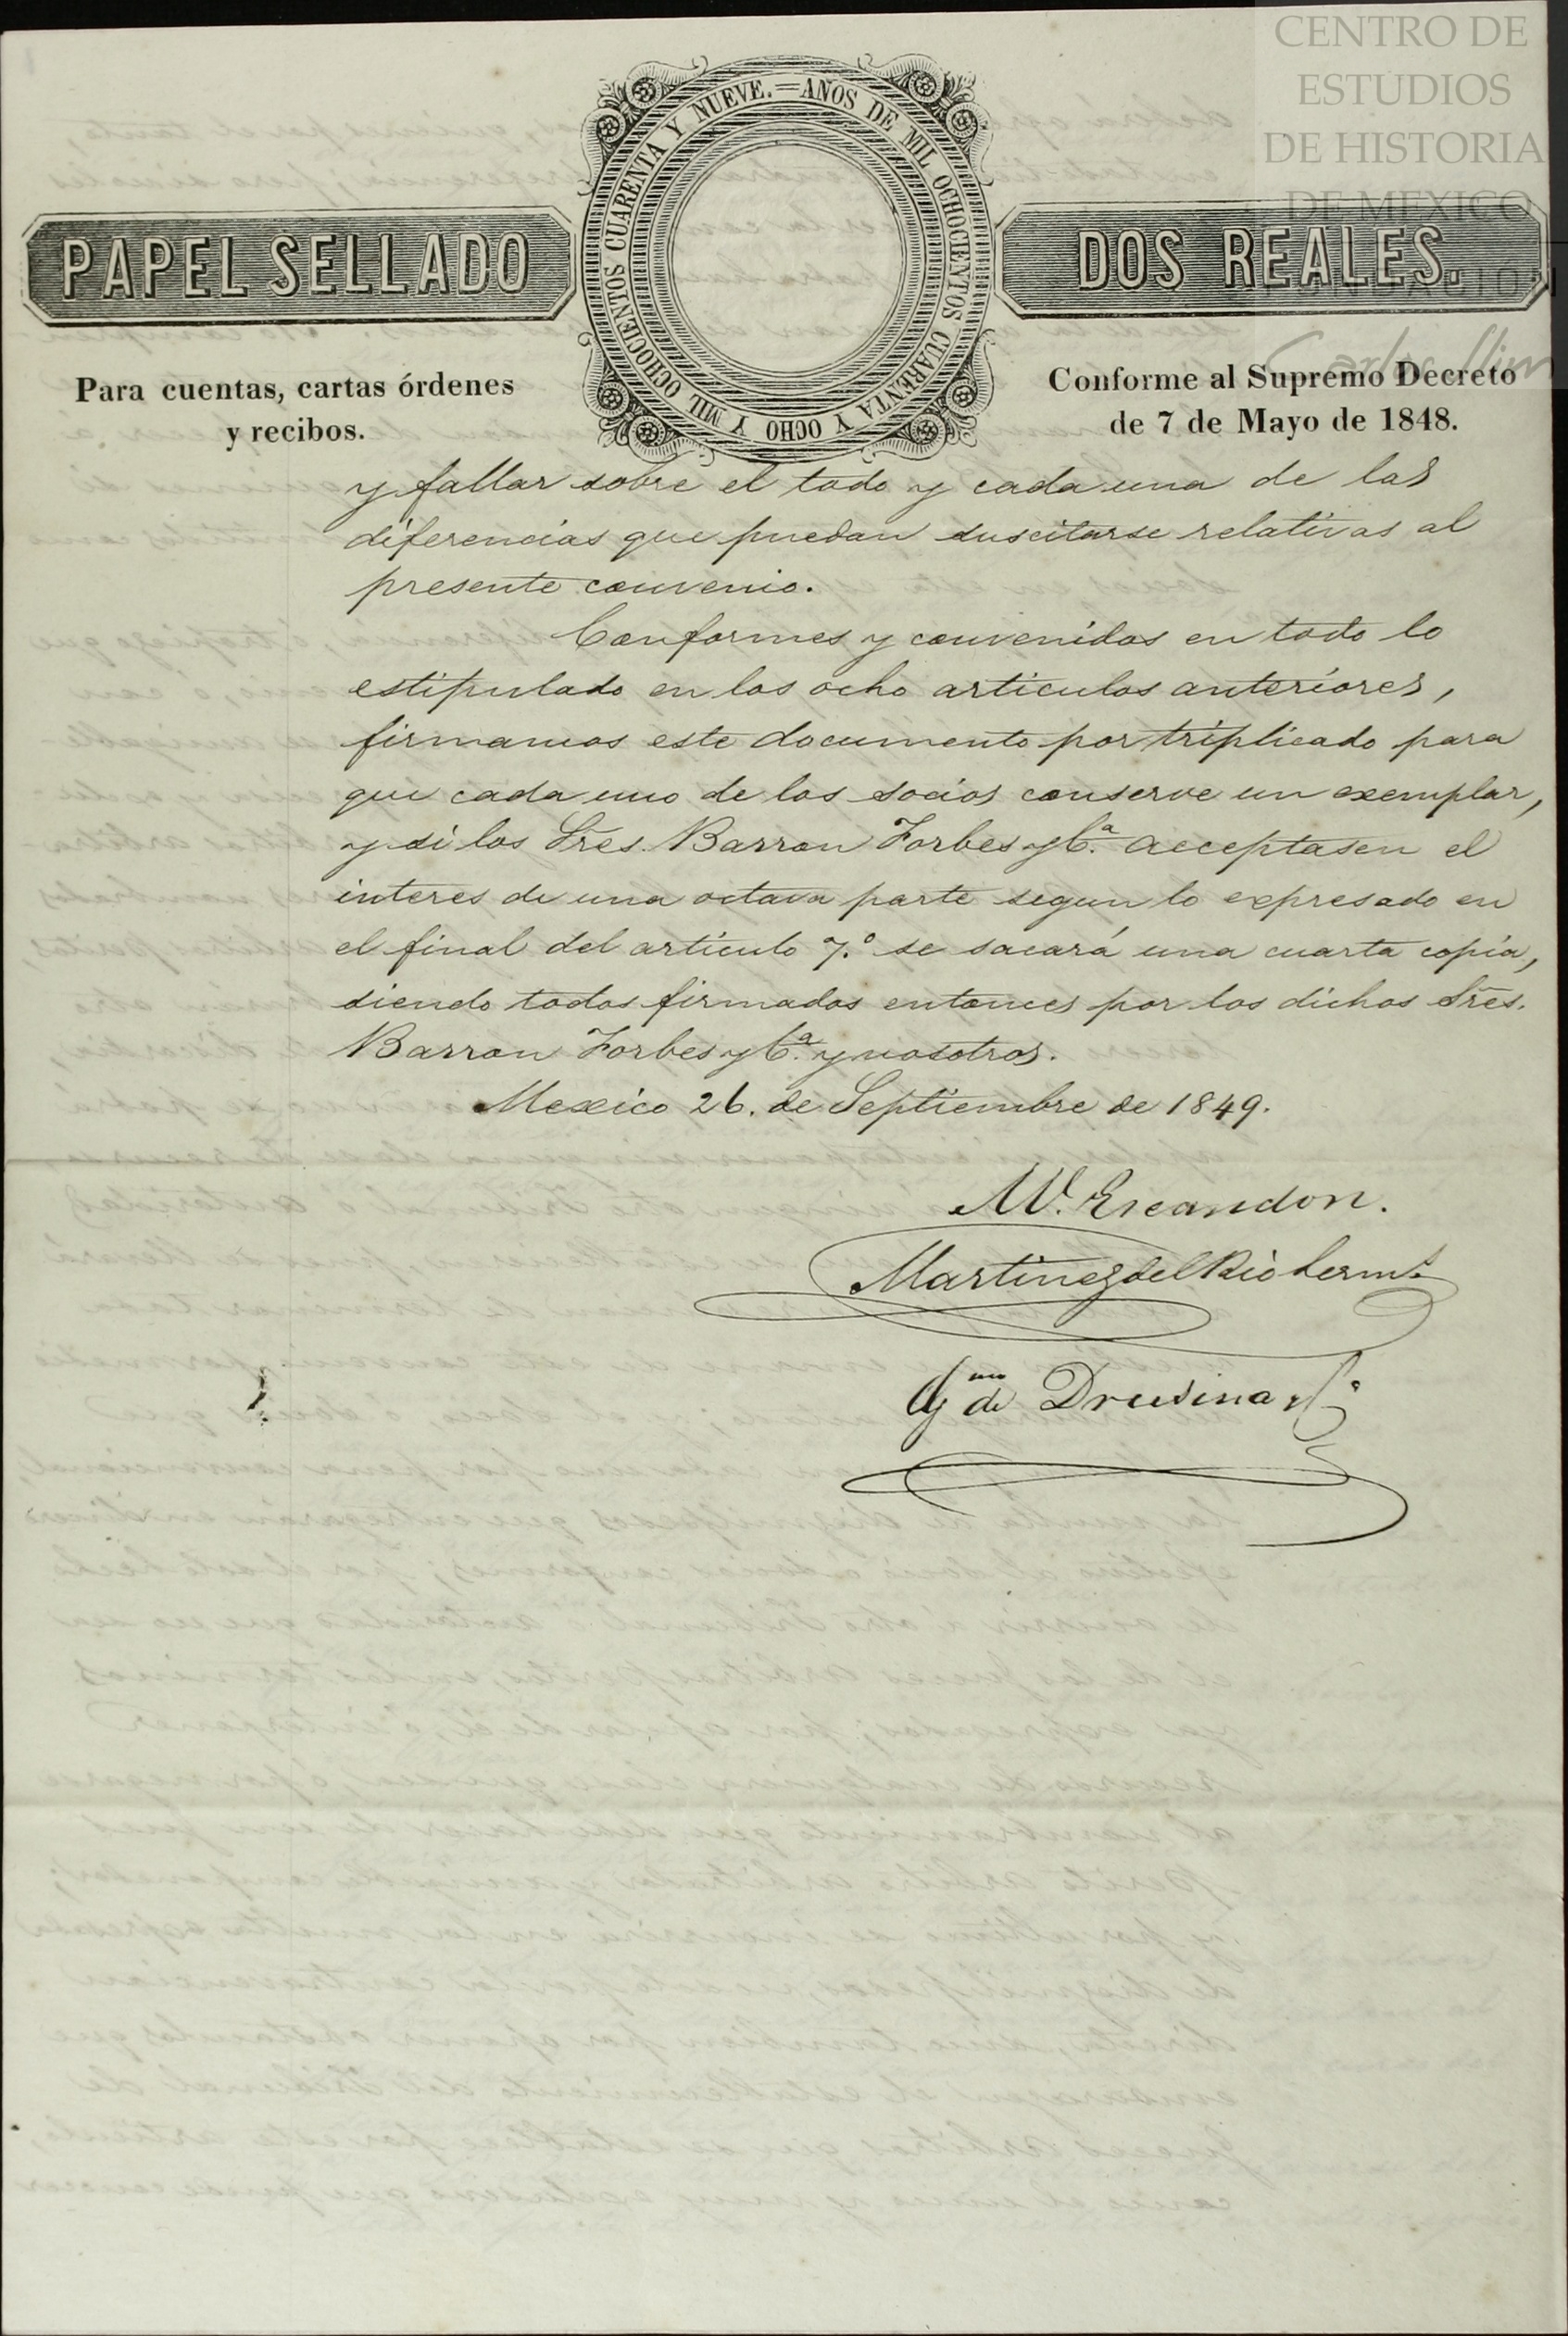 CENTRO DE
ESTUDIOS
DE HISTORIA
DE MEXICO
AÑOS DE MIL OCHOCIENTOS CUARENTA Y OCHO Y MIL OCHOCIENTOS CUARENTA Y NUEVE.=
PAPEL SELLADO
DOS REALES.
Para cuentas, cartas órdenes
y recibos.
Conforme al Supremo Decreto
de 7 de Mayo de 1848.
y fallar sobre el todo y cada una de las
diferencias que puedan suscitarse relativas al
presente convenio.
Conformes y convenidos en todo lo
estipulado en los ocho articulos anteriores,
firmamos este documento por triplicado para
que cada uno de los socios conserve un exemplar,
y si los Sres. Barron Forbes y Cª. acceptasen el
interes de una octava parte segun lo expresado en
el final del artículo 7.º se sacará una cuarta copia,
siendo todos firmados entonces por los dichos Sres.
Barron Forbes y Cª. y nosotros.
Mexico 26. de Septiembre de 1849.
M. Escandon.
Martinez del Rio herms.
Gmo de Drusina y Cª